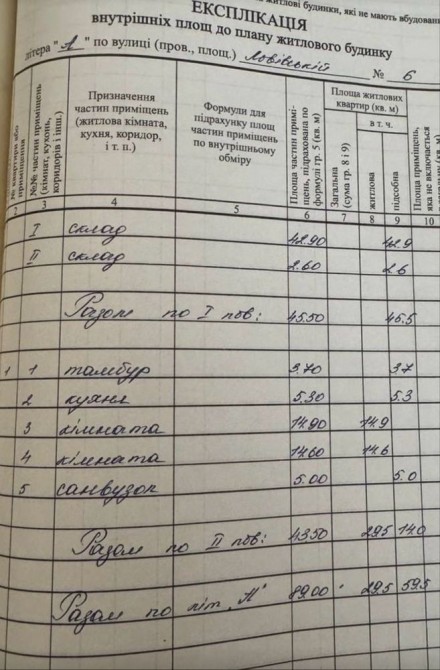 житлові будинки, які не мають вбудован
ЕКСПЛІКАЦІЯ
внутрішніх площ до плану житлового будинку
літера "А" по вулиці (пров., площ.) Ловівській № 6
приміщення
№№ частин приміщень (кімнат, кухонь, коридорів і інш.)
Призначення частин приміщень (житлова кімната, кухня, коридор, і т. п.)
Формули для підрахунку площ частин приміщень по внутрішньому обміру
Площа частин приміщень, підрахована по формулі гр. 5 (кв. м)
Площа житлових квартир (кв. м)
Загальна (сума гр. 8 і 9)
в т. ч.
житлова
підсобна
Площа приміщень, яка не включається
3 4 5 6 7 8 9 10
I склад 42.90 42.9
II склад 2.60 2.6
Разом по I пов: 45.50 46.5
1 1 тамбур 3.70 3.7
2 кухня 5.30 5.3
3 кімната 14.90 14.9
4 кімната 14.60 14.6
5 санвузол 5.00 5.0
Разом по II пов: 43.50 29.5 14.0
Разом по літ. "А" 89.00 29.5 59.5